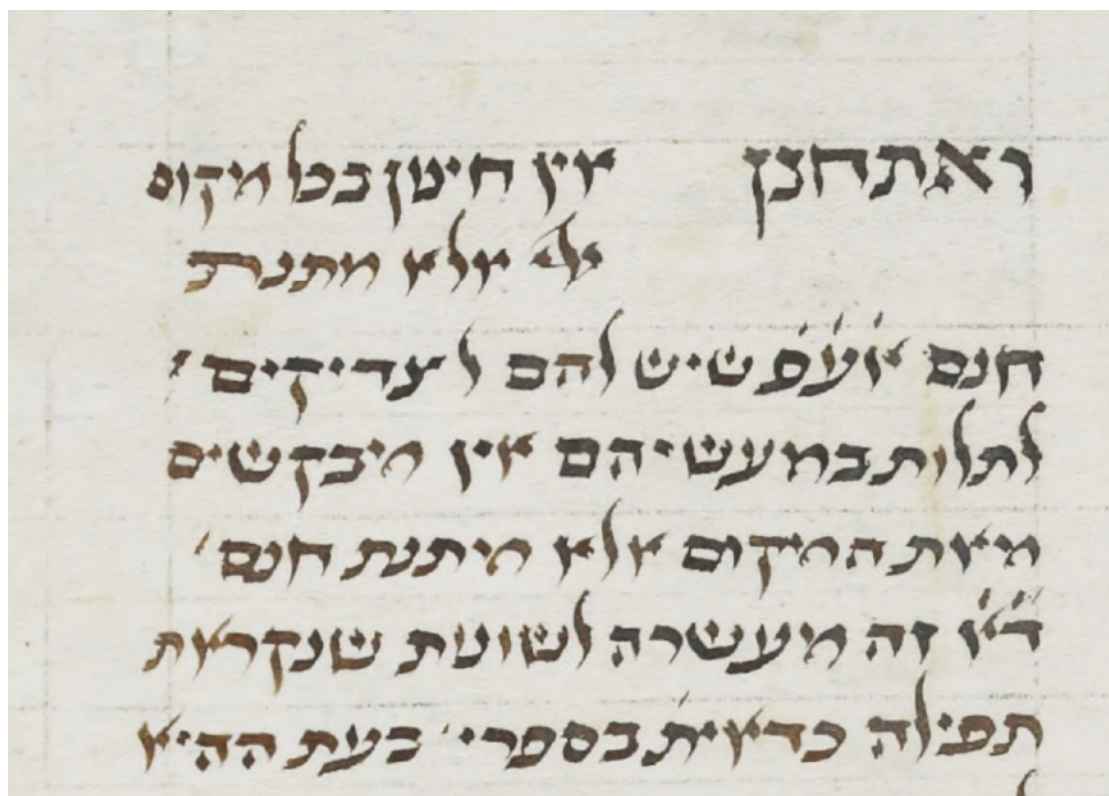 ואתחנן אין חינון בכל מקום
אל אלא מתנת
חנם א'ע'פ' שיש להם לצדיקים '
לתלות במעשיהם אין מבקשים
מאת המקום אלא מתנת חנם '
ד'א' זה מעשרה לשונות שנקראת
תפילה כדאית' בספרי ' בעת ההיא